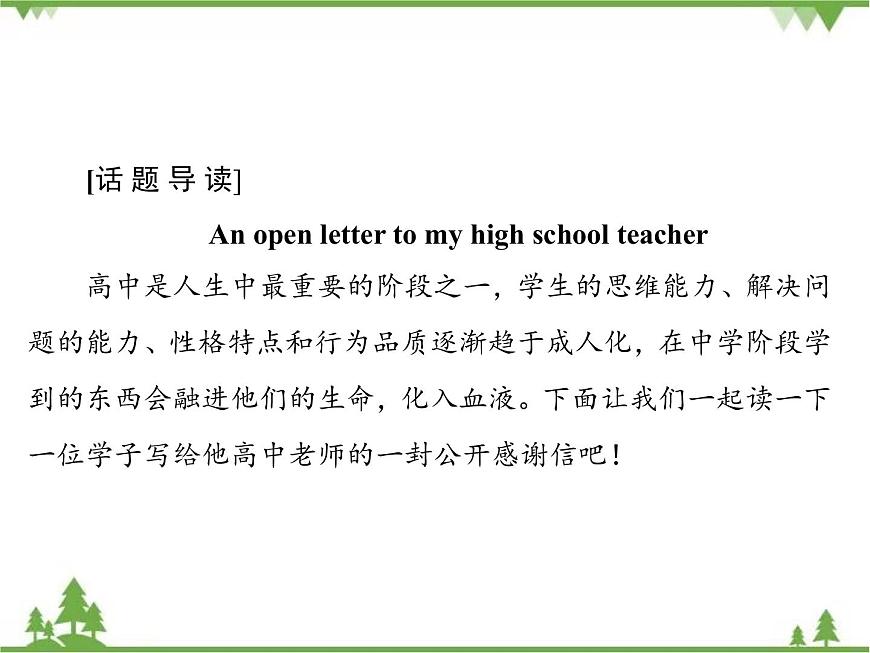 [话 题 导 读]
An open letter to my high school teacher
高中是人生中最重要的阶段之一，学生的思维能力、解决问
题的能力、性格特点和行为品质逐渐趋于成人化，在中学阶段学
到的东西会融进他们的生命，化入血液。下面让我们一起读一下
一位学子写给他高中老师的一封公开感谢信吧！